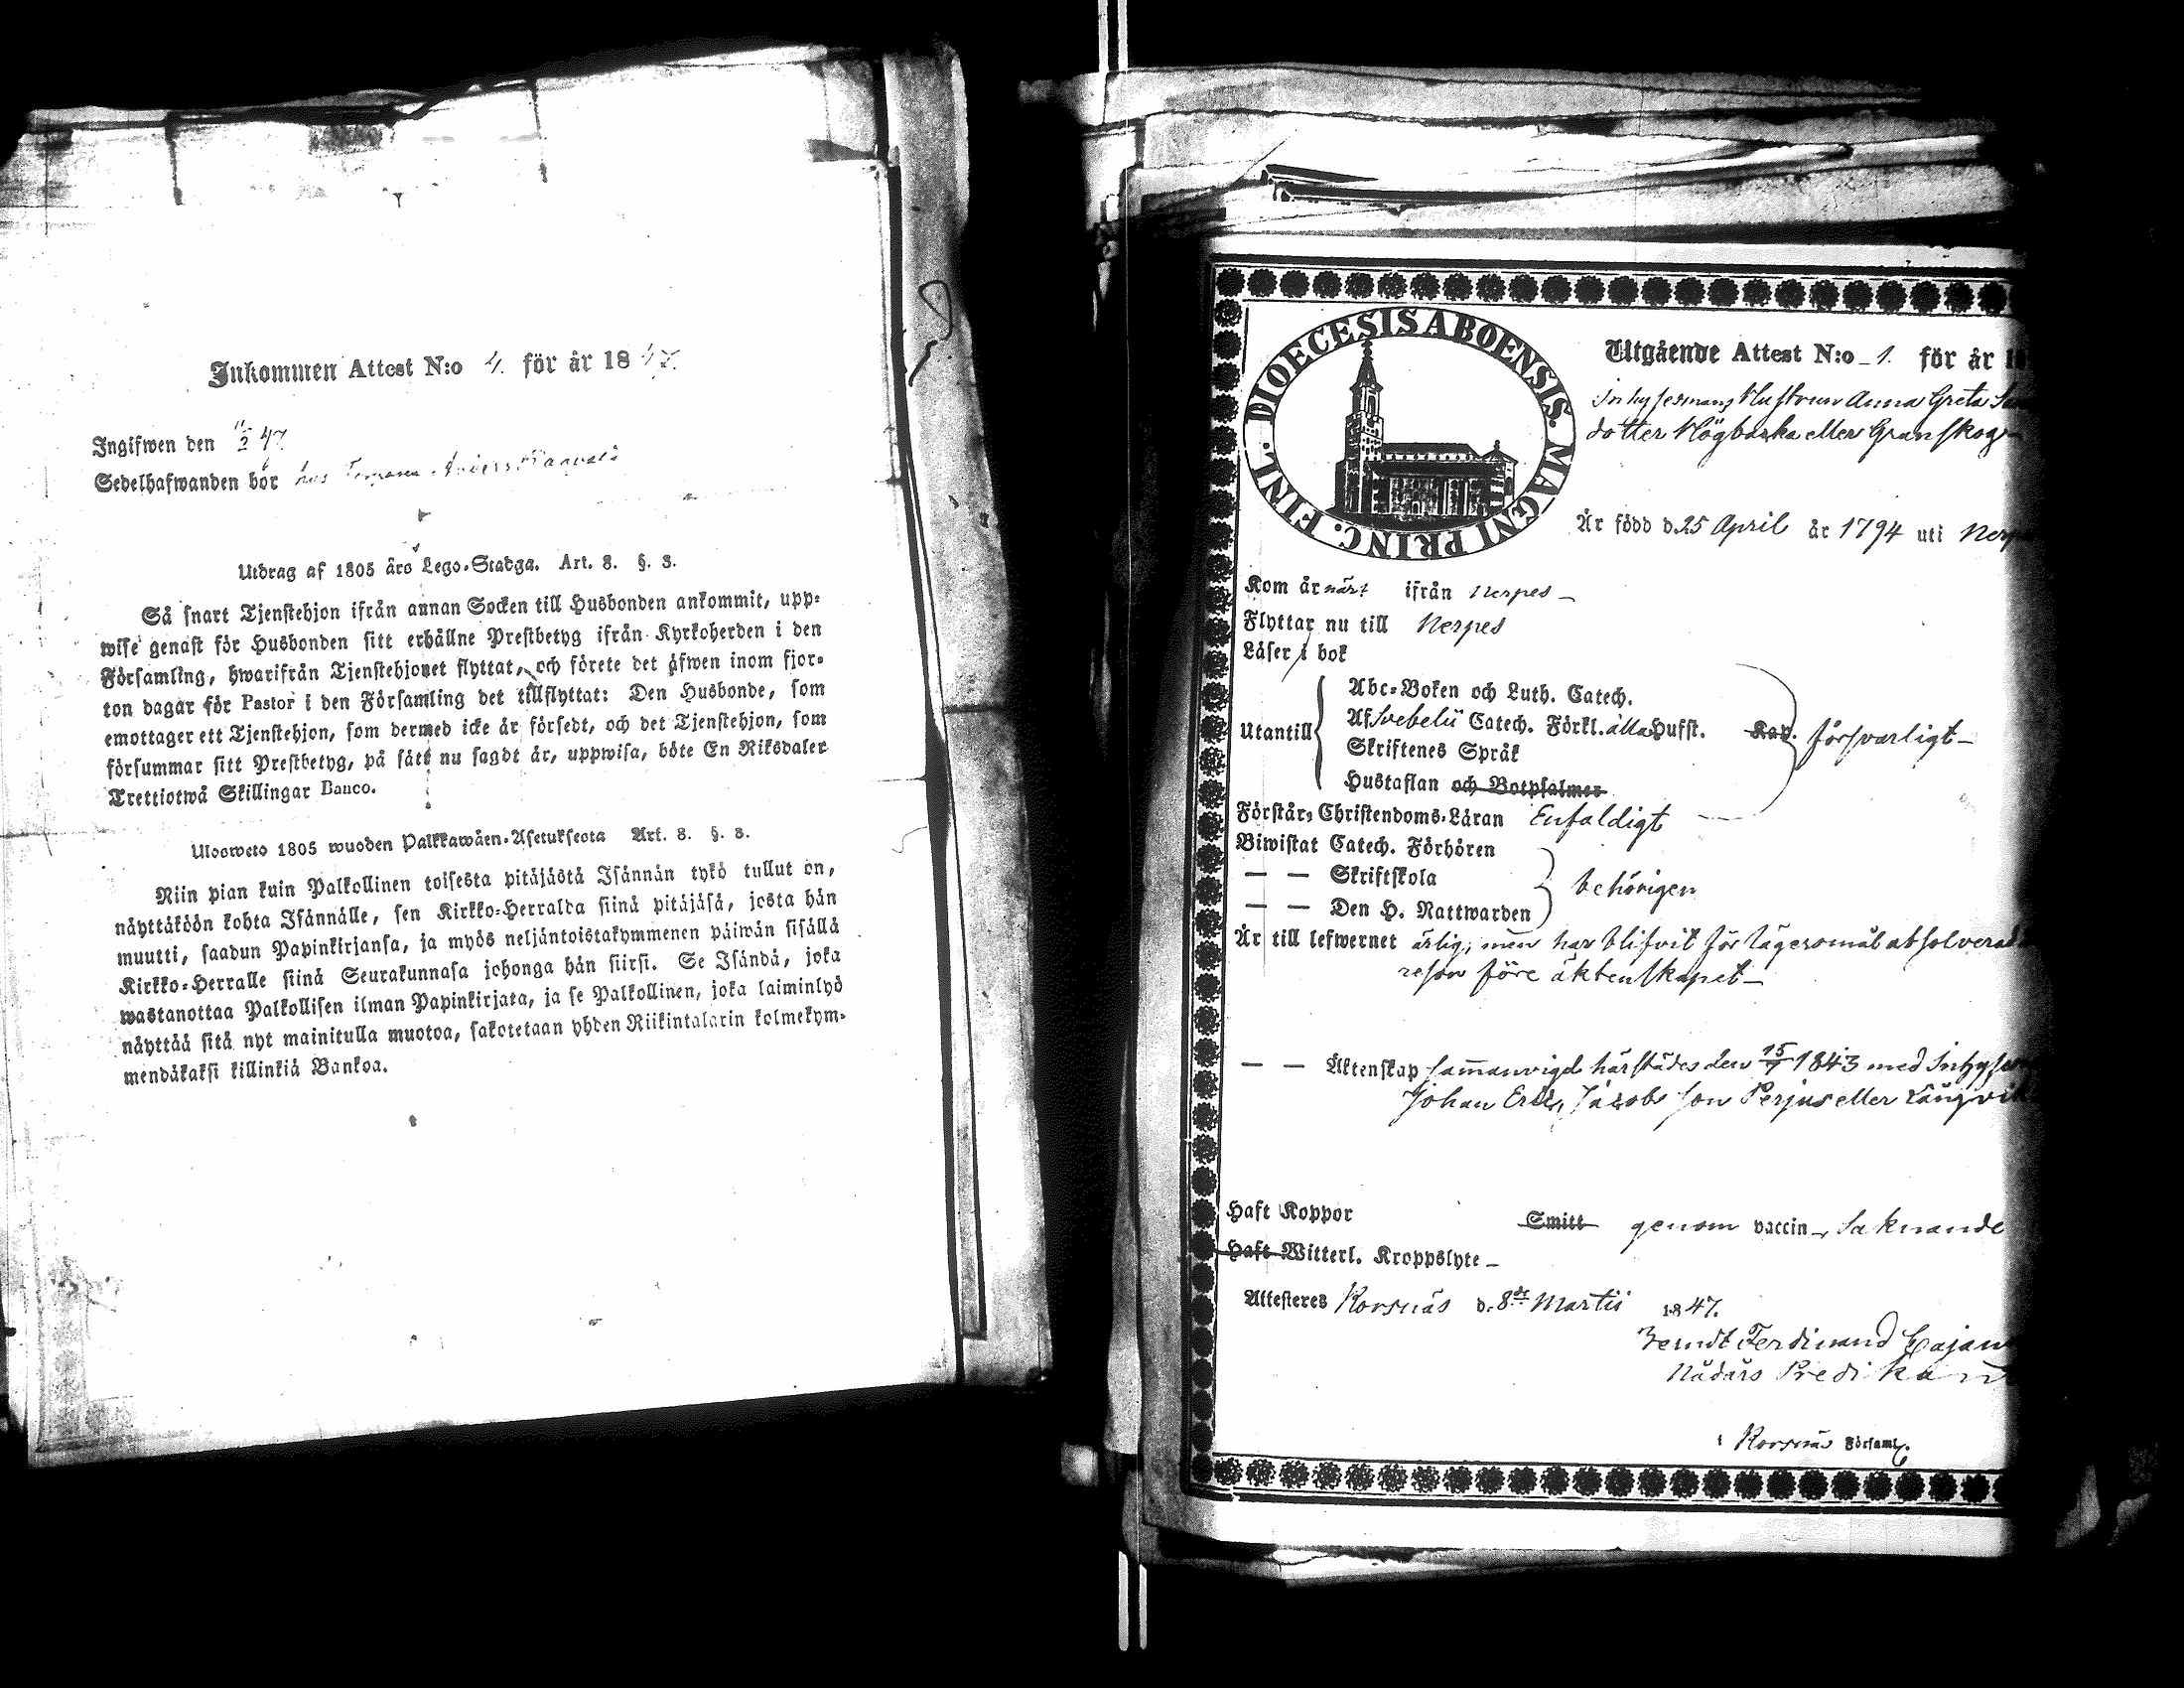 Inkommen Attest N:o 4. för år 1847.
Ingifwen den 11/2 47
Sedelhafwanden bor hos
Utdrag af 1805 års Lego-Stadga. Art. 8. §. 3.
Så snart Tjenstehjon ifrån annan Socken till Husbonden ankommit, upp-
wise genast för Husbonden sitt erhållne Prestbetyg ifrån Kyrkoherden i den
Församling, hwarifrån Tjenstehjonet flyttat, och förete det äfwen inom fjor-
ton dagar för Pastor i den Församling det tillflyttat: Den Husbonde, som
emottager ett Tjenstehjon, som dermed icke är försedt, och det Tjenstehjon, som
försummar sitt Prestbetyg, på sätt nu sagdt är, uppwisa, böte En Riksdaler
Trettiotwå Skillingar Banco.
Ulosweto 1805 wuoden Palkkawäen-Asetuksesta Art. 8. §. 3.
Niin pian kuin Palkollinen toisesta pitäjästä Isännän tykö tullut on,
näyttäköön kohta Isännälle, sen Kirkko-Herralda siinä pitäjäsä, josta hän
muutti, saadun Papinkirjansa, ja myös neljäntoistakymmenen päiwän sisällä
Kirkko-Herralle siinä Seurakunnasa johonga hän siirsi. Se Isändä, joka
wastanottaa Palkollisen ilman Papinkirjata, ja se Palkollinen, joka laiminlyö
näyttää sitä nyt mainitulla muotoa, sakotetaan yhden Riikintalarin kolmekym-
mendäkaksi killinkiä Bankoa.
DIOECESIS ABOENSIS. MAGNI PRINC. FINL.
Utgående Attest N:o 1. för år 18
Inhysesmans Hustrun Anna Greta
dotter Högbacka eller Granskog
Är född d. 25 April år 1794 uti
Kom år näst ifrån Nerpes
Flyttar nu till Nerpes
Läser i bok
Abc-Boken och Luth. Catech.
Utantill Af Svebelii Catech. Förkl. alla Hufst. Kap. försvarligt
Skriftenes Språk
Hustaflan och Botpsalmer
Förstår Christendoms-Läran Enfaldigt
Biwistat Catech. Förhören
— — Skriftskola behörigen
— — Den H. Nattwarden
Är till lefwernet ärlig, men har blifvit för lägersmål
före äktenskapet
— — Äktenskap sammanvigd härstädes den 15/7 1843 med
Johan Eric Jacobsson Perjus eller
Haft Koppor Smitt genom vaccin, Saknande
Haft Witterl. Kroppslyte
Attesteres Korsnäs d. 8de Martii 1847.
Berndt Ferdinand
Nådårs
i Korsnäs Församl.